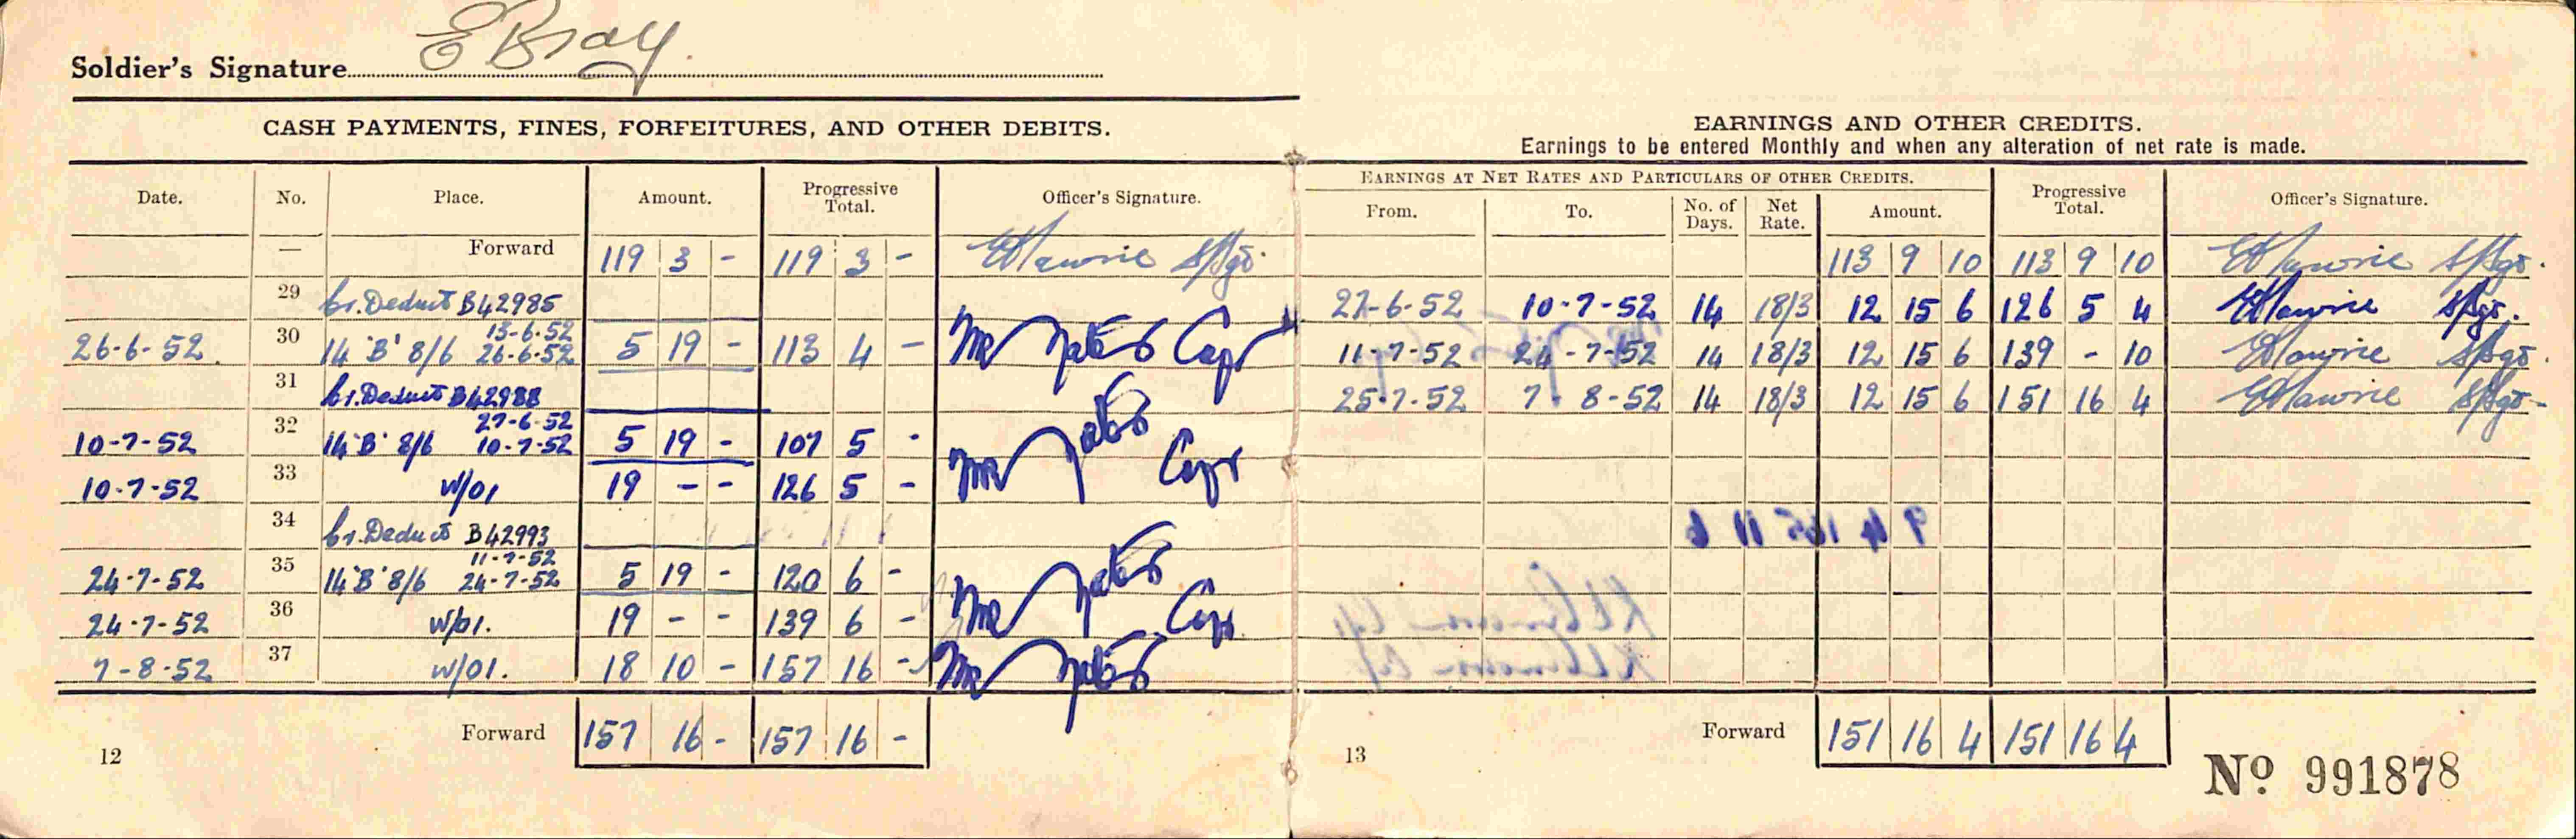 Soldier's Signature E Bray
CASH PAYMENTS, FINES, FORFEITURES, AND OTHER DEBITS.
Date. No. Place. Amount. Progressive Total. Officer's Signature.
— Forward 119 3 - 119 3 -
29 Cr. Deduct B42985
13-6-52
26-6-52 30 14 'B' 8/6 26-6-52 5 19 - 113 4 - Capt
31 Cr. Deduct B42988
27-6-52
10-7-52 32 14 'B' 8/6 10-7-52 5 19 - 107 5 -
10-7-52 33 W/O1 19 - - 126 5 - Capt
34 Cr. Deduct B42993
11-7-52
24-7-52 35 14 'B' 8/6 24-7-52 5 19 - 120 6 -
24-7-52 36 W/O1. 19 - - 139 6 - Capt
7-8-52 37 W/O1. 18 10 - 157 16 -
Forward 157 16 - 157 16 -
12
EARNINGS AND OTHER CREDITS.
Earnings to be entered Monthly and when any alteration of net rate is made.
EARNINGS AT NET RATES AND PARTICULARS OF OTHER CREDITS. Progressive Total. Officer's Signature.
From. To. No. of Days. Net Rate. Amount.
113 9 10 113 9 10
27-6-52 10-7-52 14 18/3 12 15 6 126 5 4
11-7-52 24-7-52 14 18/3 12 15 6 139 - 10
25-7-52 7-8-52 14 18/3 12 15 6 151 16 4
Forward 151 16 4 151 16 4
13
Nº 991878